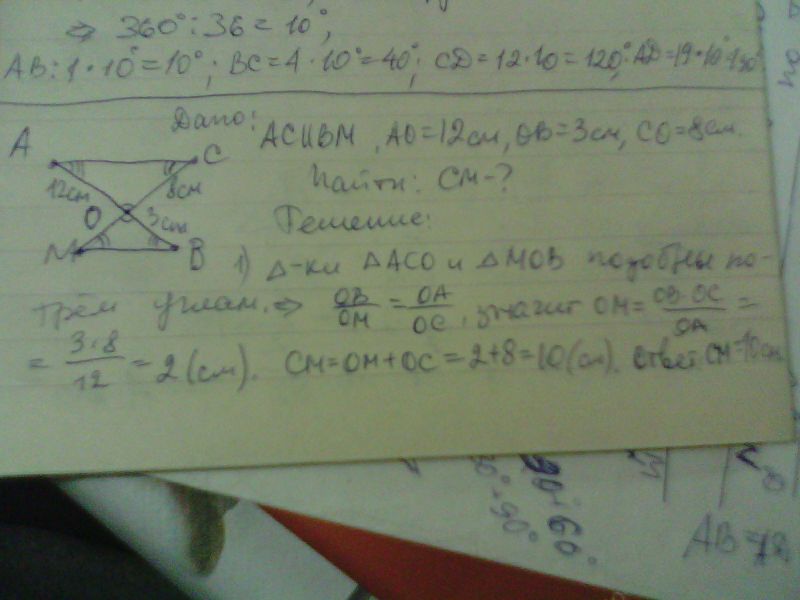 ⇒ 360° : 36 = 10°,
AB: 1·10° = 10°; BC = 4·10° = 40°; CD = 12·10 = 120°; AD = 19·10° = 190°
Дано: AC ИВМ, AO = 12см, OB = 3см, CO = 8см.
Найти: CM - ?
Решение:
A
C
12см
8см
O
3см
M
B
1) Δ-ки ΔACO и ΔMOB подобны по-
трём углам. ⇒ OB/OM = OA/OC, значит OM = OB·OC/OA =
= 3·8/12 = 2 (см). CM = OM + OC = 2+8 = 10 (см). Ответ: CM = 10см.
90° 60°
+90°
AB = 18